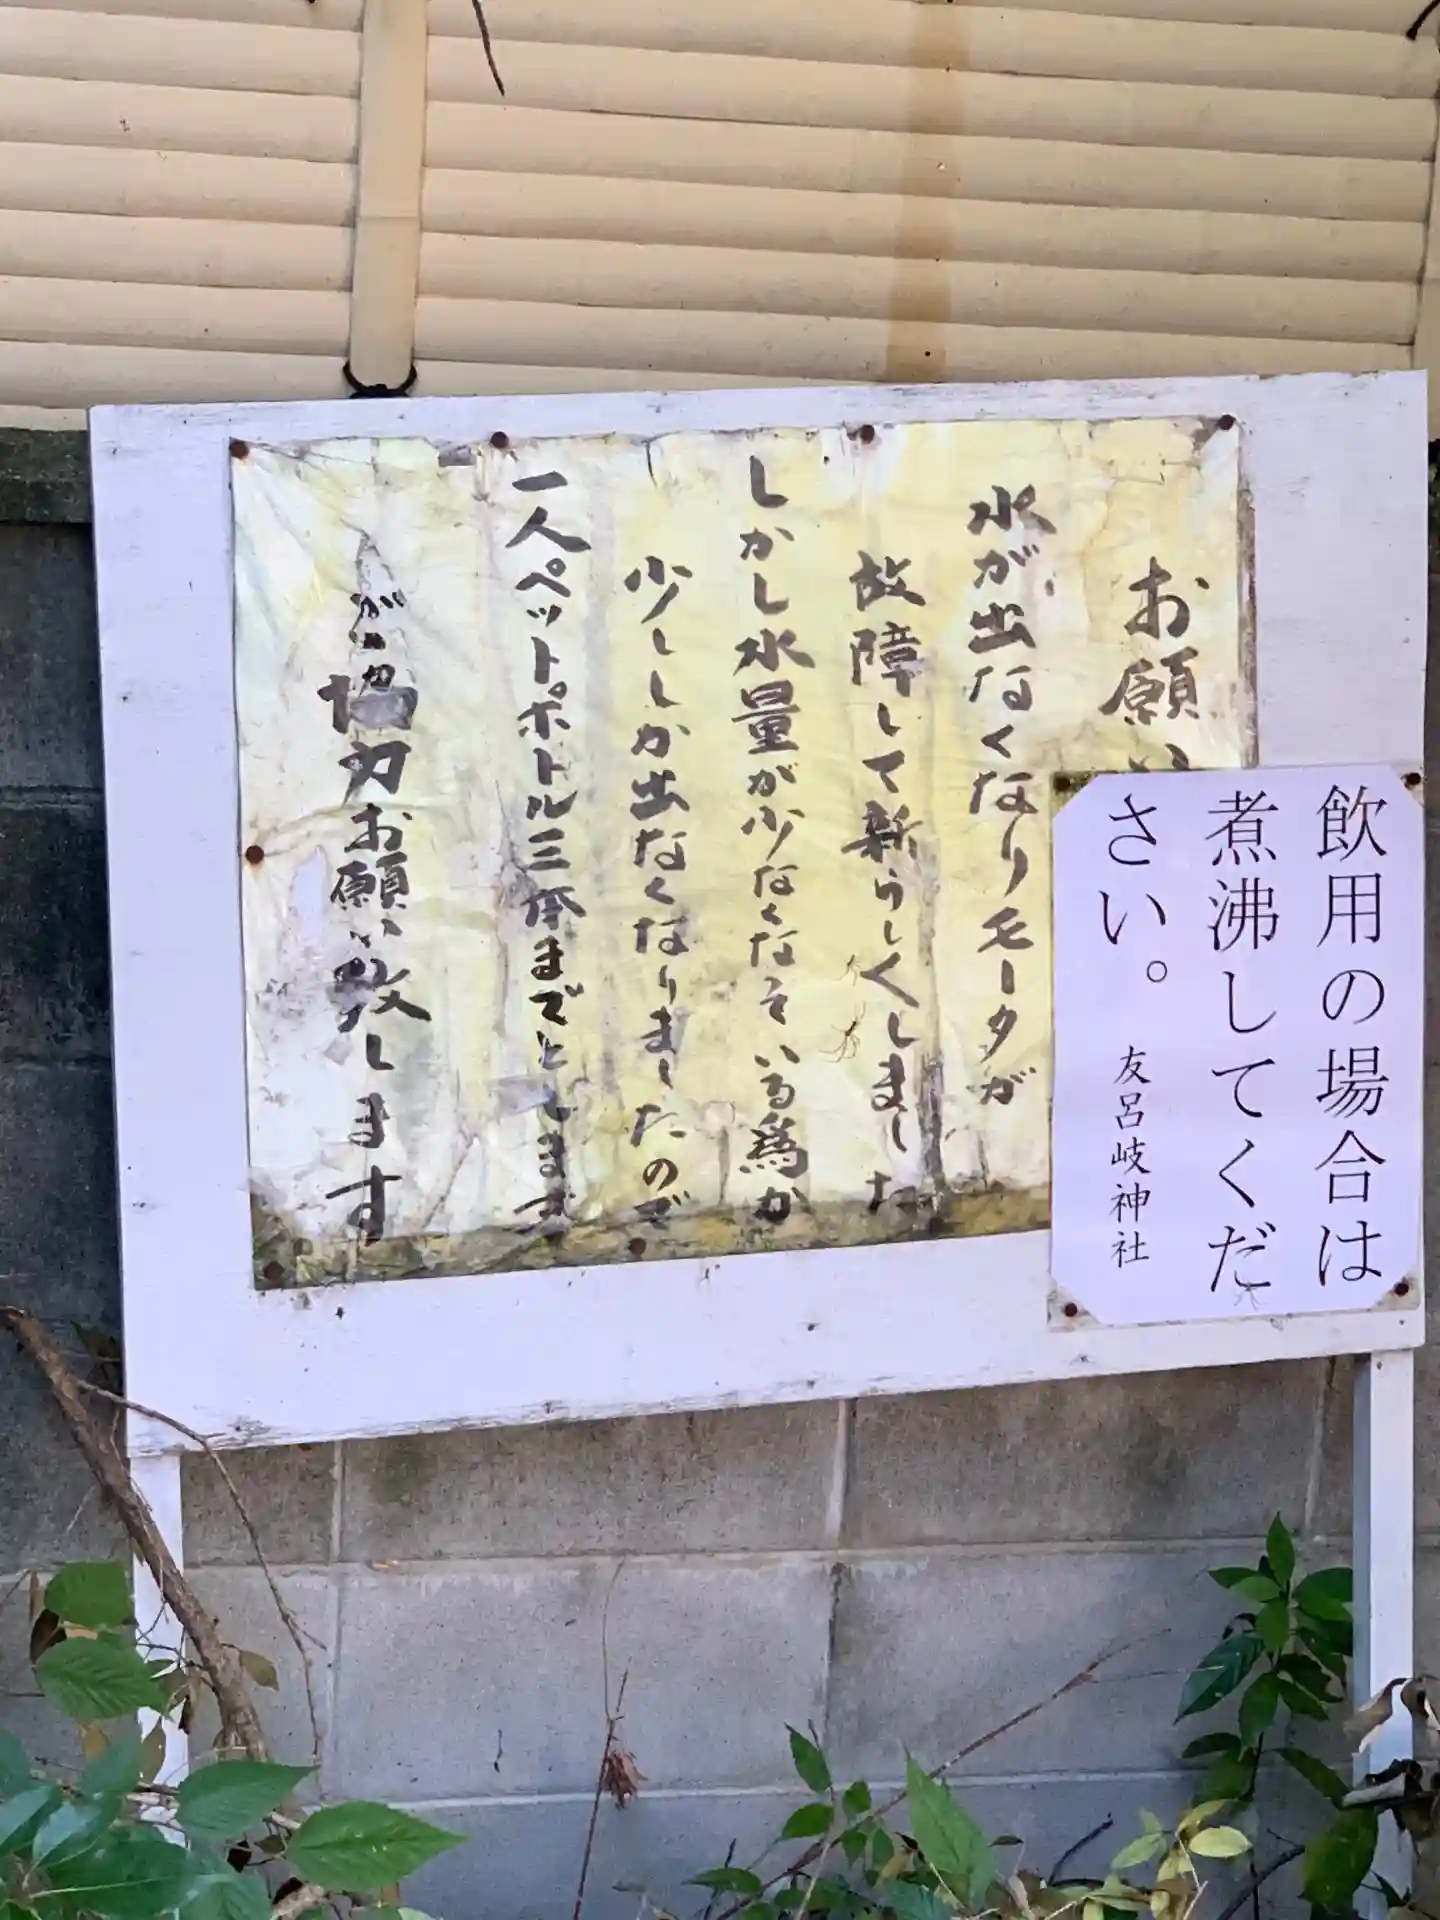 お願い
水が出なくなりモータが
故障して新らしくしました
しかし水量が少なくなっている為か
少ししか出なくなりましたので
一人ペットボトル三本までとします
ご協力お願い致します
飲用の場合は
煮沸してくだ
さい。
友呂岐神社